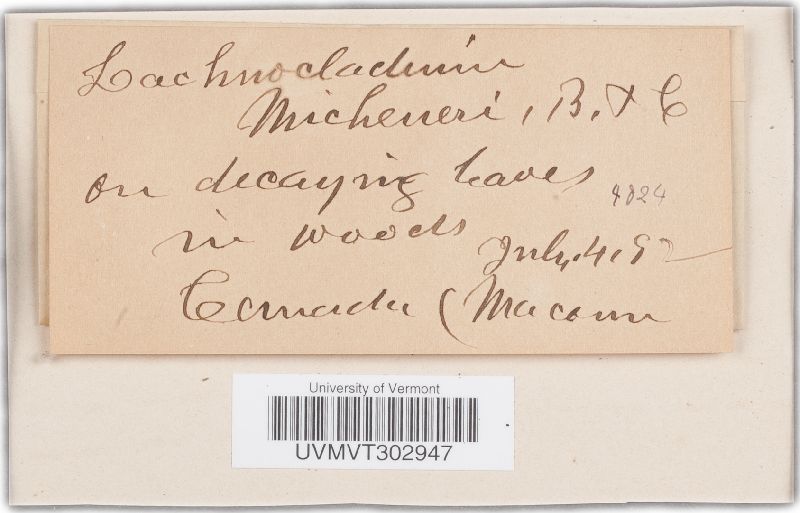 Lachnocladium
Micheneri, B. & C
on decaying leaves
4824
in woods July 4, 92
Canada (Macoun
University of Vermont
UVMVT302947